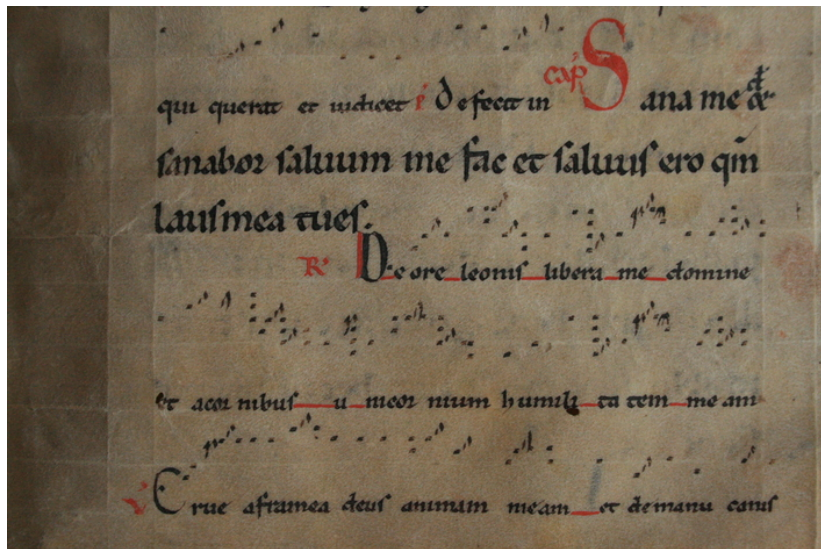 qui querat et iudicet ℟ Defecit in cap̄ Sana me d̄e &
sanabor saluum me fac et saluus ero qm̄
laus mea tu es.
℟ De ore leonis libera me domine
et a cornibus unicornium humilitatem meam
℣ Erue a framea deus animam meam et de manu canis